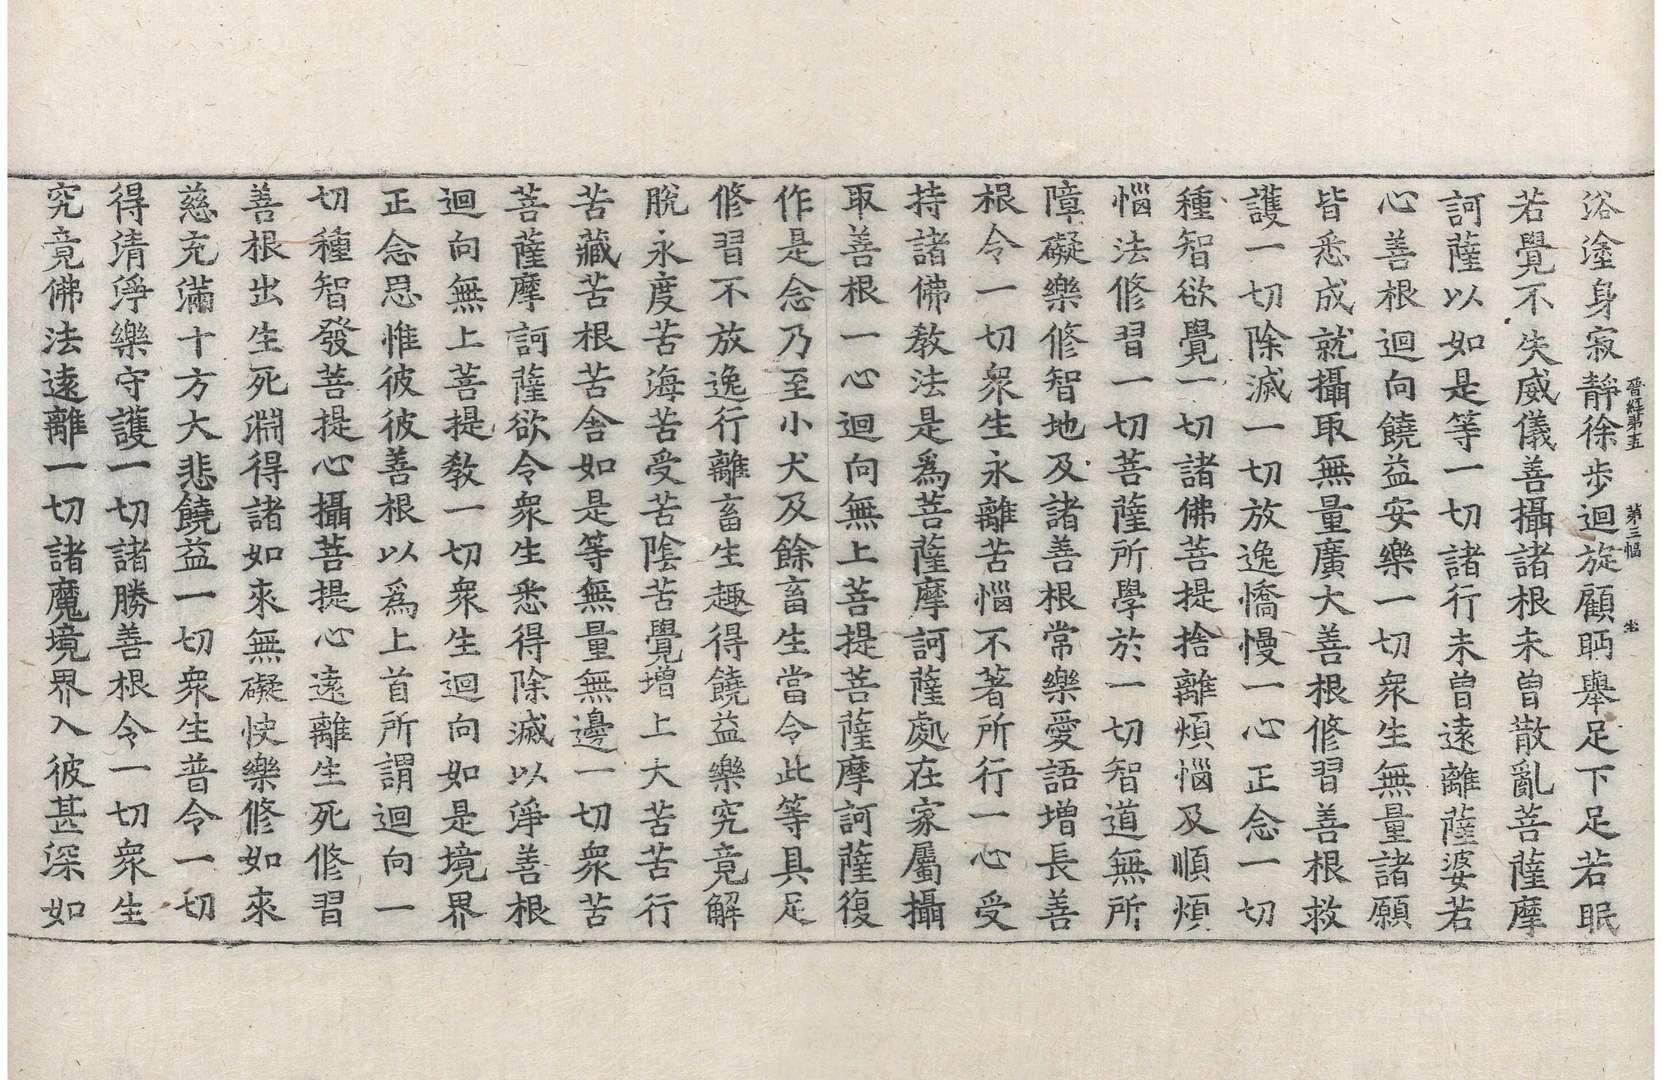 晉經第五 第三幅 坐
浴塗身寂靜徐步迴旋顧眄舉足下足若眠
若覺不失威儀善攝諸根未曾散亂菩薩摩
訶薩以如是等一切諸行未曾遠離薩婆若
心善根迴向饒益安樂一切衆生無量諸願
皆悉成就攝取無量廣大善根修習善根救
護一切除滅一切放逸憍慢一心正念一切
種智欲覺一切諸佛菩提捨離煩惱及順煩
惱法修習一切菩薩所學於一切智道無所
障礙樂修智地及諸善根常樂愛語增長善
根令一切衆生永離苦惱不著所行一心受
持諸佛教法是爲菩薩摩訶薩處在家屬攝
取善根一心迴向無上菩提菩薩摩訶薩復
作是念乃至小犬及餘畜生當令此等具足
修習不放逸行離畜生趣得饒益樂究竟解
脫永度苦海苦受苦陰苦覺增上大苦苦行
苦藏苦根苦舍如是等無量無邊一切衆苦
菩薩摩訶薩欲令衆生悉得除滅以淨善根
迴向無上菩提教一切衆生迴向如是境界
正念思惟彼彼善根以爲上首所謂迴向一
切種智發菩提心攝菩提心遠離生死修習
善根出生死淵得諸如來無礙快樂修如來
慈充滿十方大悲饒益一切衆生普令一切
得清淨樂守護一切諸勝善根令一切衆生
究竟佛法遠離一切諸魔境界入彼甚深如